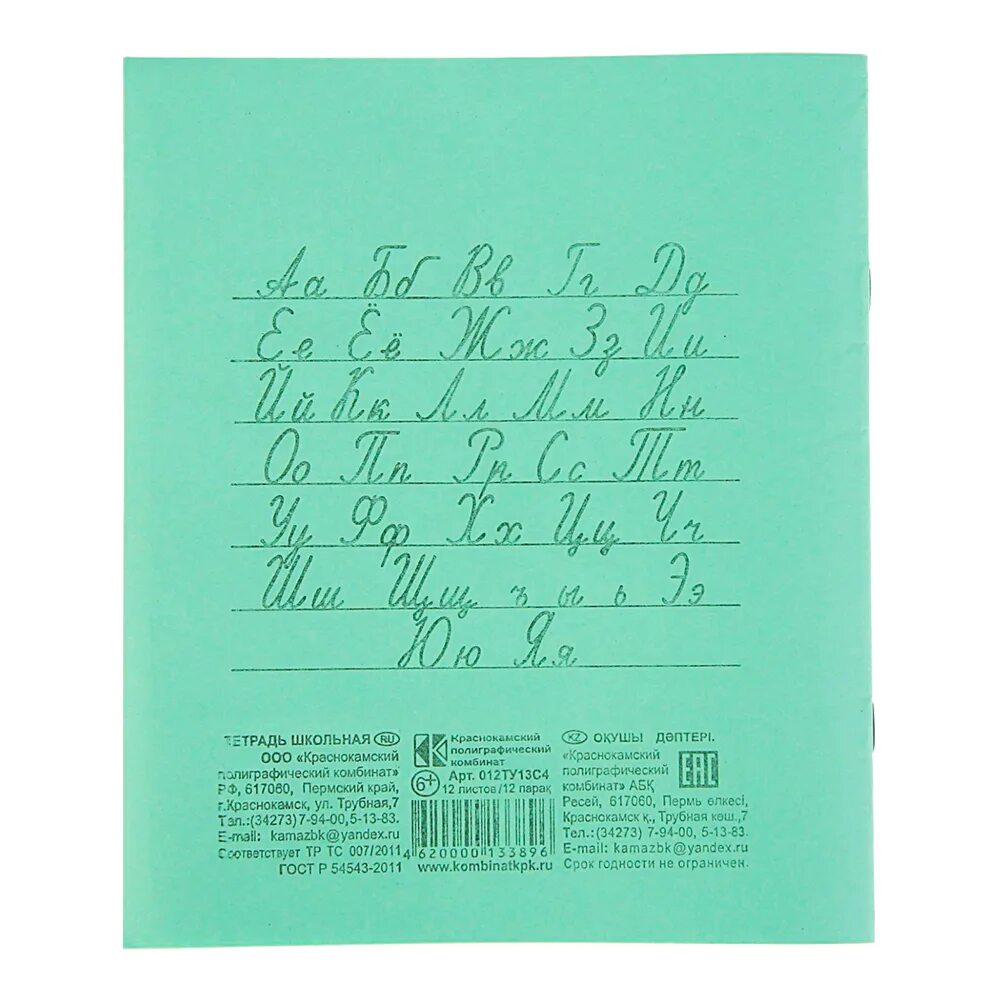 Аа Бб Вв Гг Дд
Ее Ёё Жж Зз Ии
Йй Кк Лл Мм Нн
Оо Пп Рр Сс Тт
Уу Фф Хх Цц Чч
Шш Щщ ъ ы ь Ээ
Юю Яя
ТЕТРАДЬ ШКОЛЬНАЯ RU
ООО «Краснокамский
полиграфический комбинат»
РФ, 617060, Пермский край,
г.Краснокамск, ул. Трубная,7
Тел.:(34273) 7-94-00,5-13-83.
E-mail: kamazbk@yandex.ru
Соответствует ТР ТС 007/2011
ГОСТ Р 54543-2011
Краснокамский
полиграфический
комбинат
6+ Арт. 012ТУ13С4
12 листов/12 парақ
4 620000 133896
www.kombinatkpk.ru
KZ ОҚУШЫ ДӘПТЕРІ.
«Краснокамский
полиграфический
комбинат» АБҚ
EAC
Ресей, 617060, Пермь өлкесі,
Краснокамск қ., Трубная көш.,7
Тел.:(34273) 7-94-00, 5-13-83.
E-mail: kamazbk@yandex.ru
Срок годности не ограничен.